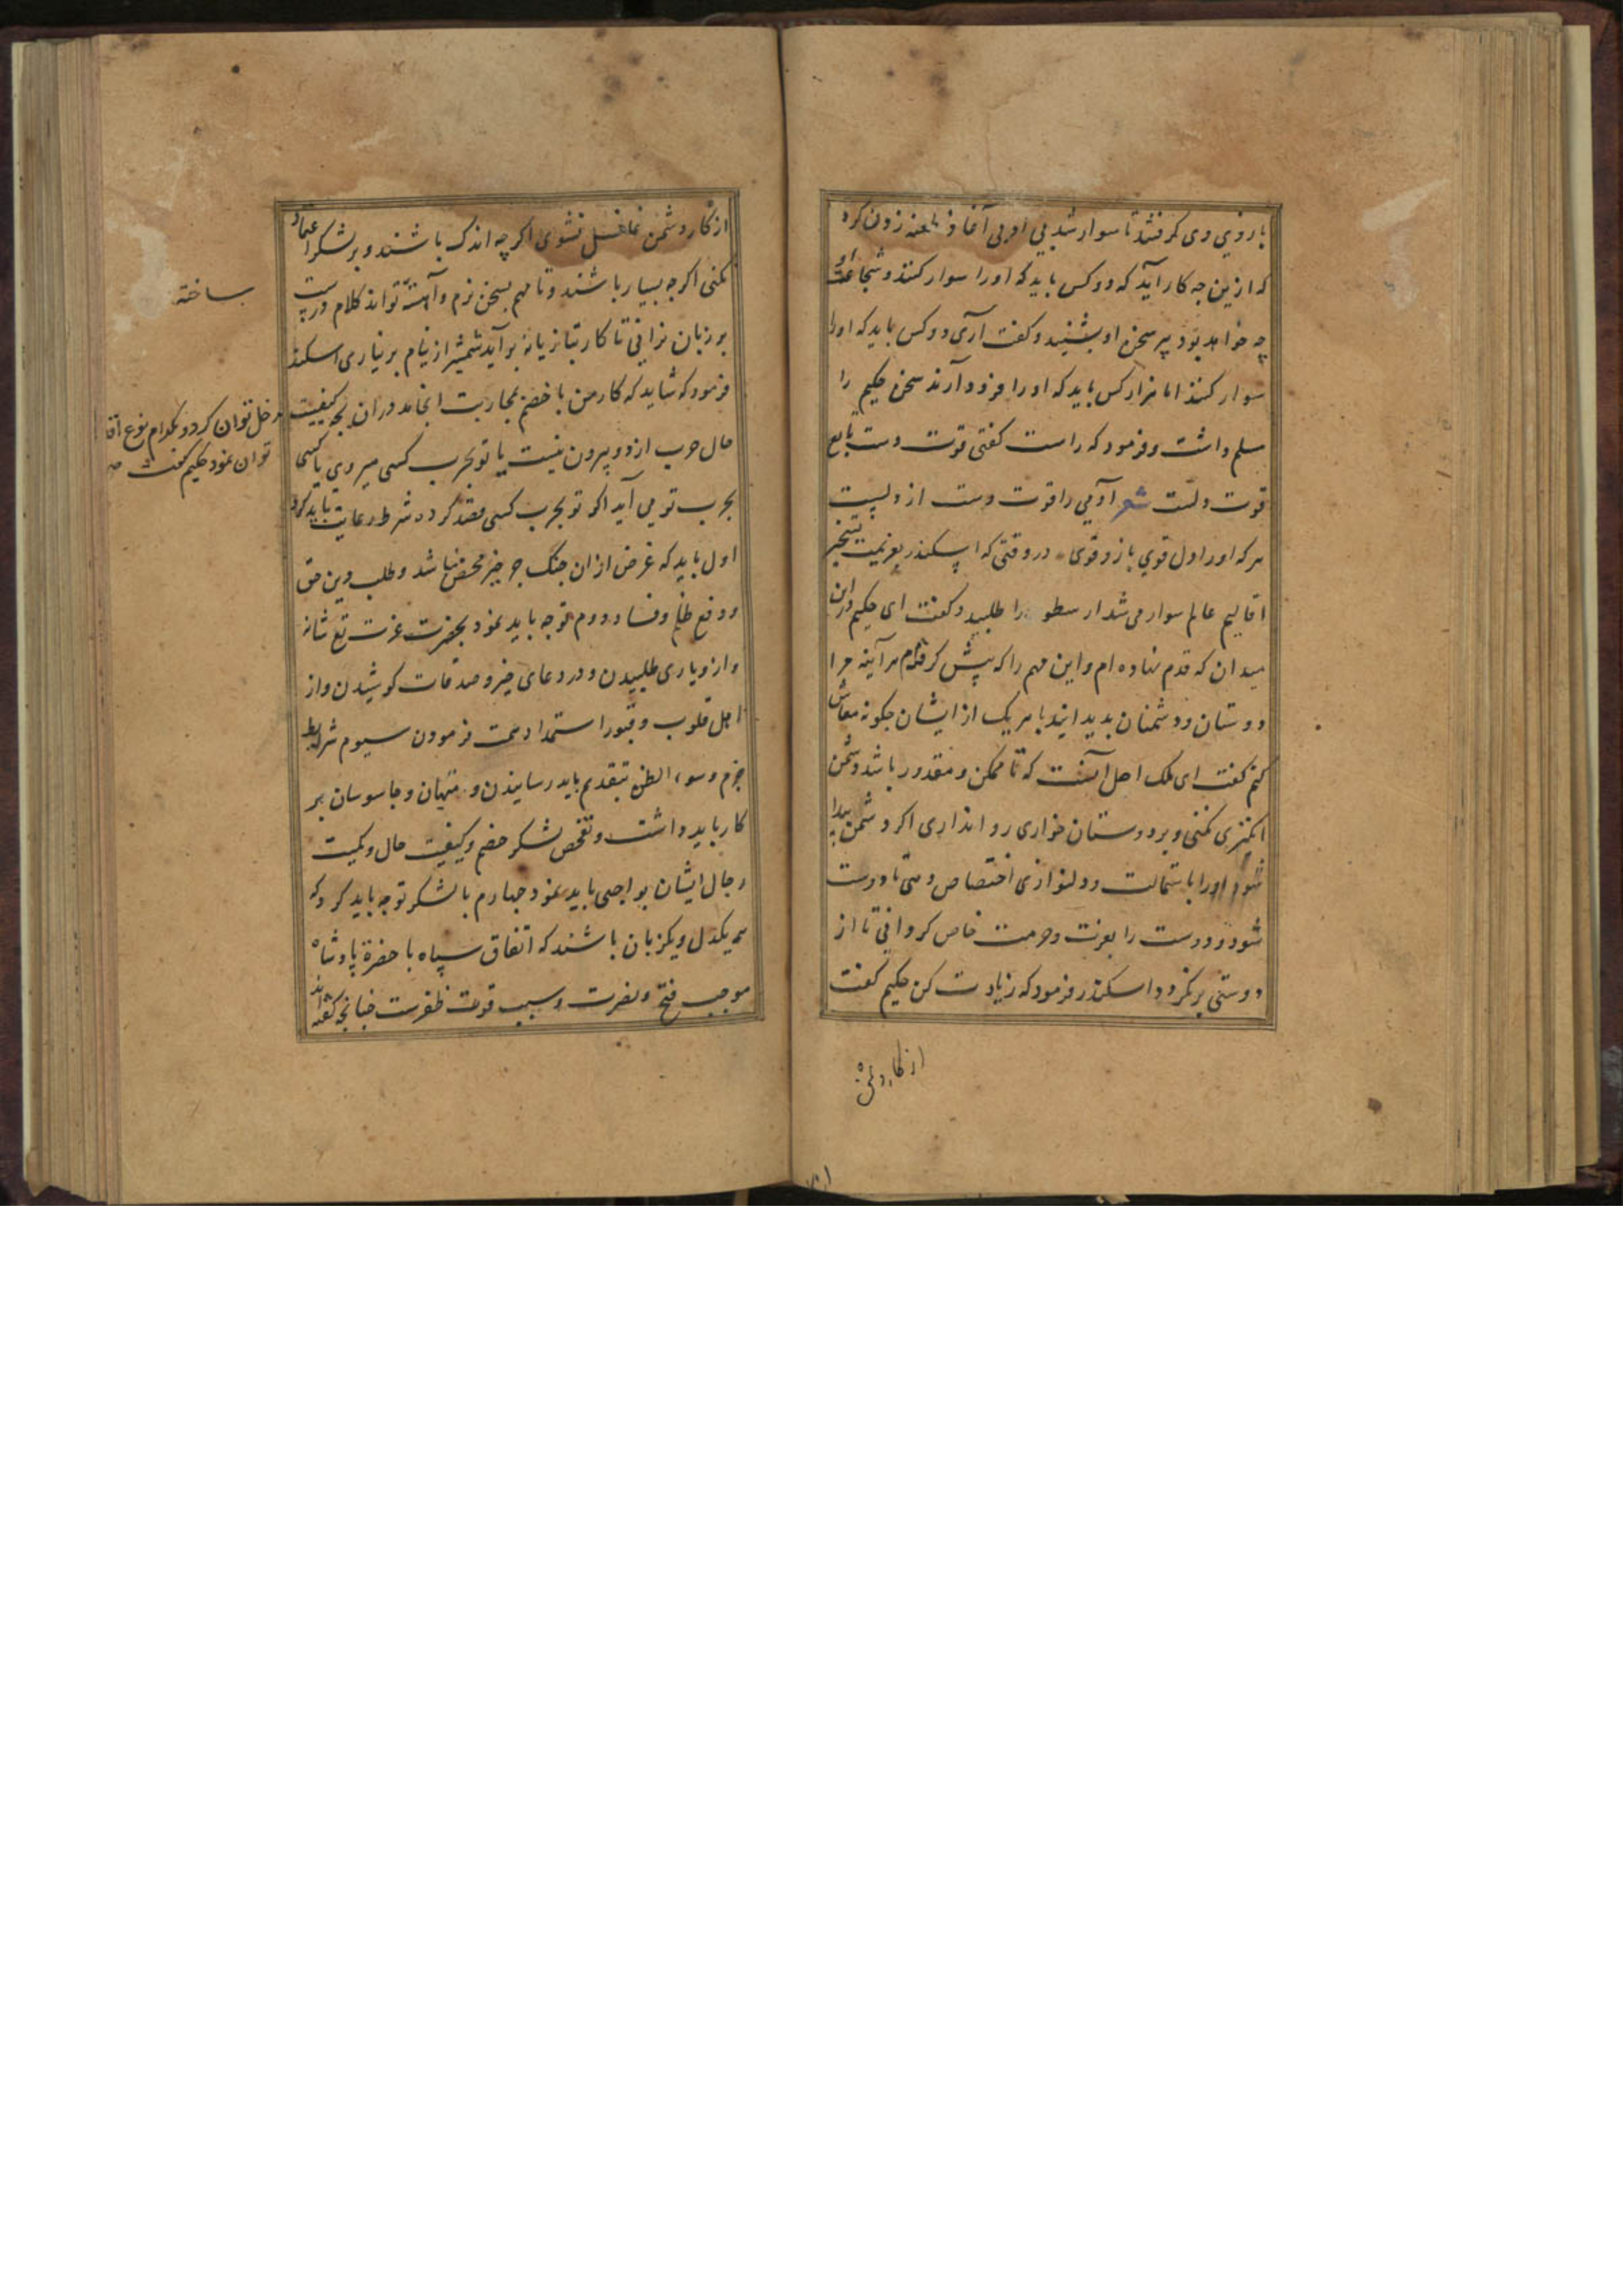 بازوی وی گرفتند تا سوار شد بی ادبی آغاز طعنه زدن کرد
که ازین چه کار آید که دو کس باید که او را سوار کنند و شجاعت او
چه خواهد بود پیر سخن او بشنید و گفت آری دو کس باید که او را
سوار کنند اما هزار کس باید که او را فرود آرند سخن حکیم را
مسلم داشت و فرمود که راست گفتی قوت دست تابع
قوت دلست شعر آدمی را قوت دست از دلیست
هر که او را دل قوی بازو قوی در وقتی که اسکندر بعزیمت تسخیر
اقالیم عالم سوار می شد ارسطو را طلبید و گفت ای حکیم درین
میدان که قدم نهاده ام و این مهم را که پیش گرفته ام هر آینه مرا
دوستان و دشمنان بدید ایند با هر یک از ایشان چگونه معاش
کنم گفت ای ملک اصل آنست که تا ممکن و مقدور باشد دشمن
انگیزی نکنی و بر دوستان خواری روا نداری اگر دشمن پیدا
شود او را باستمالت و دلنوازی اختصاص دهی تا دوست
شود و دوست را بعزت و حرمت خاص گردانی تا از
دوستی برنگردد اسکندر فرمود که زیادت کن حکیم گفت
از کار دشمن
از کار دشمن غافل نشوی اگر چه اندک باشند و بر لشکر اعتماد
نکنی اگر چه بسیار باشند و تا مهم بسخن نرم و آهسته تواند کلام درشت
بر زبان نرانی تا کار بتازیانه بر آید شمشیر از نیام بر نیاری اسکندر
ساخته
فرمود که شاید که کار من با خصم بمحاربت انجامد در آن بچه کیفیت
دخل توان کرد و بکدام نوع
توان نمود حکیم گفت
حال حرب از دو بیرون نیست یا تو بحرب کسی میروی یا کسی
بحرب تو می آید اگر تو بحرب کسی قصد کرده شرط رعایت باید کرد
اول باید که غرض از ان جنگ جز خیر محض نباشد و طلب دین حق
و دفع ظلم و فساد دوم توجه باید نمود بحضرت عزت تع شانه
و از و یاری طلبیدن و در دعای خیر و صدقات کوشیدن و از
اهل قلوب و قبور استمداد همت فرمودن سیوم شرایط
حزم و سوء الظن بتقدیم باید رسانیدن و منهیان و جاسوسان بر
کار باید داشت و تفحص لشکر خصم و کیفیت حال و کمیت
رجال ایشان بواجبی باید نمود چهارم با لشکر توجه باید کرد که
همه یکدل و یکزبان باشند که اتفاق سپاه با حضرة پادشاه
موجب فتح و نصرت و سبب قوت ظفرست چنانچه گفته اند